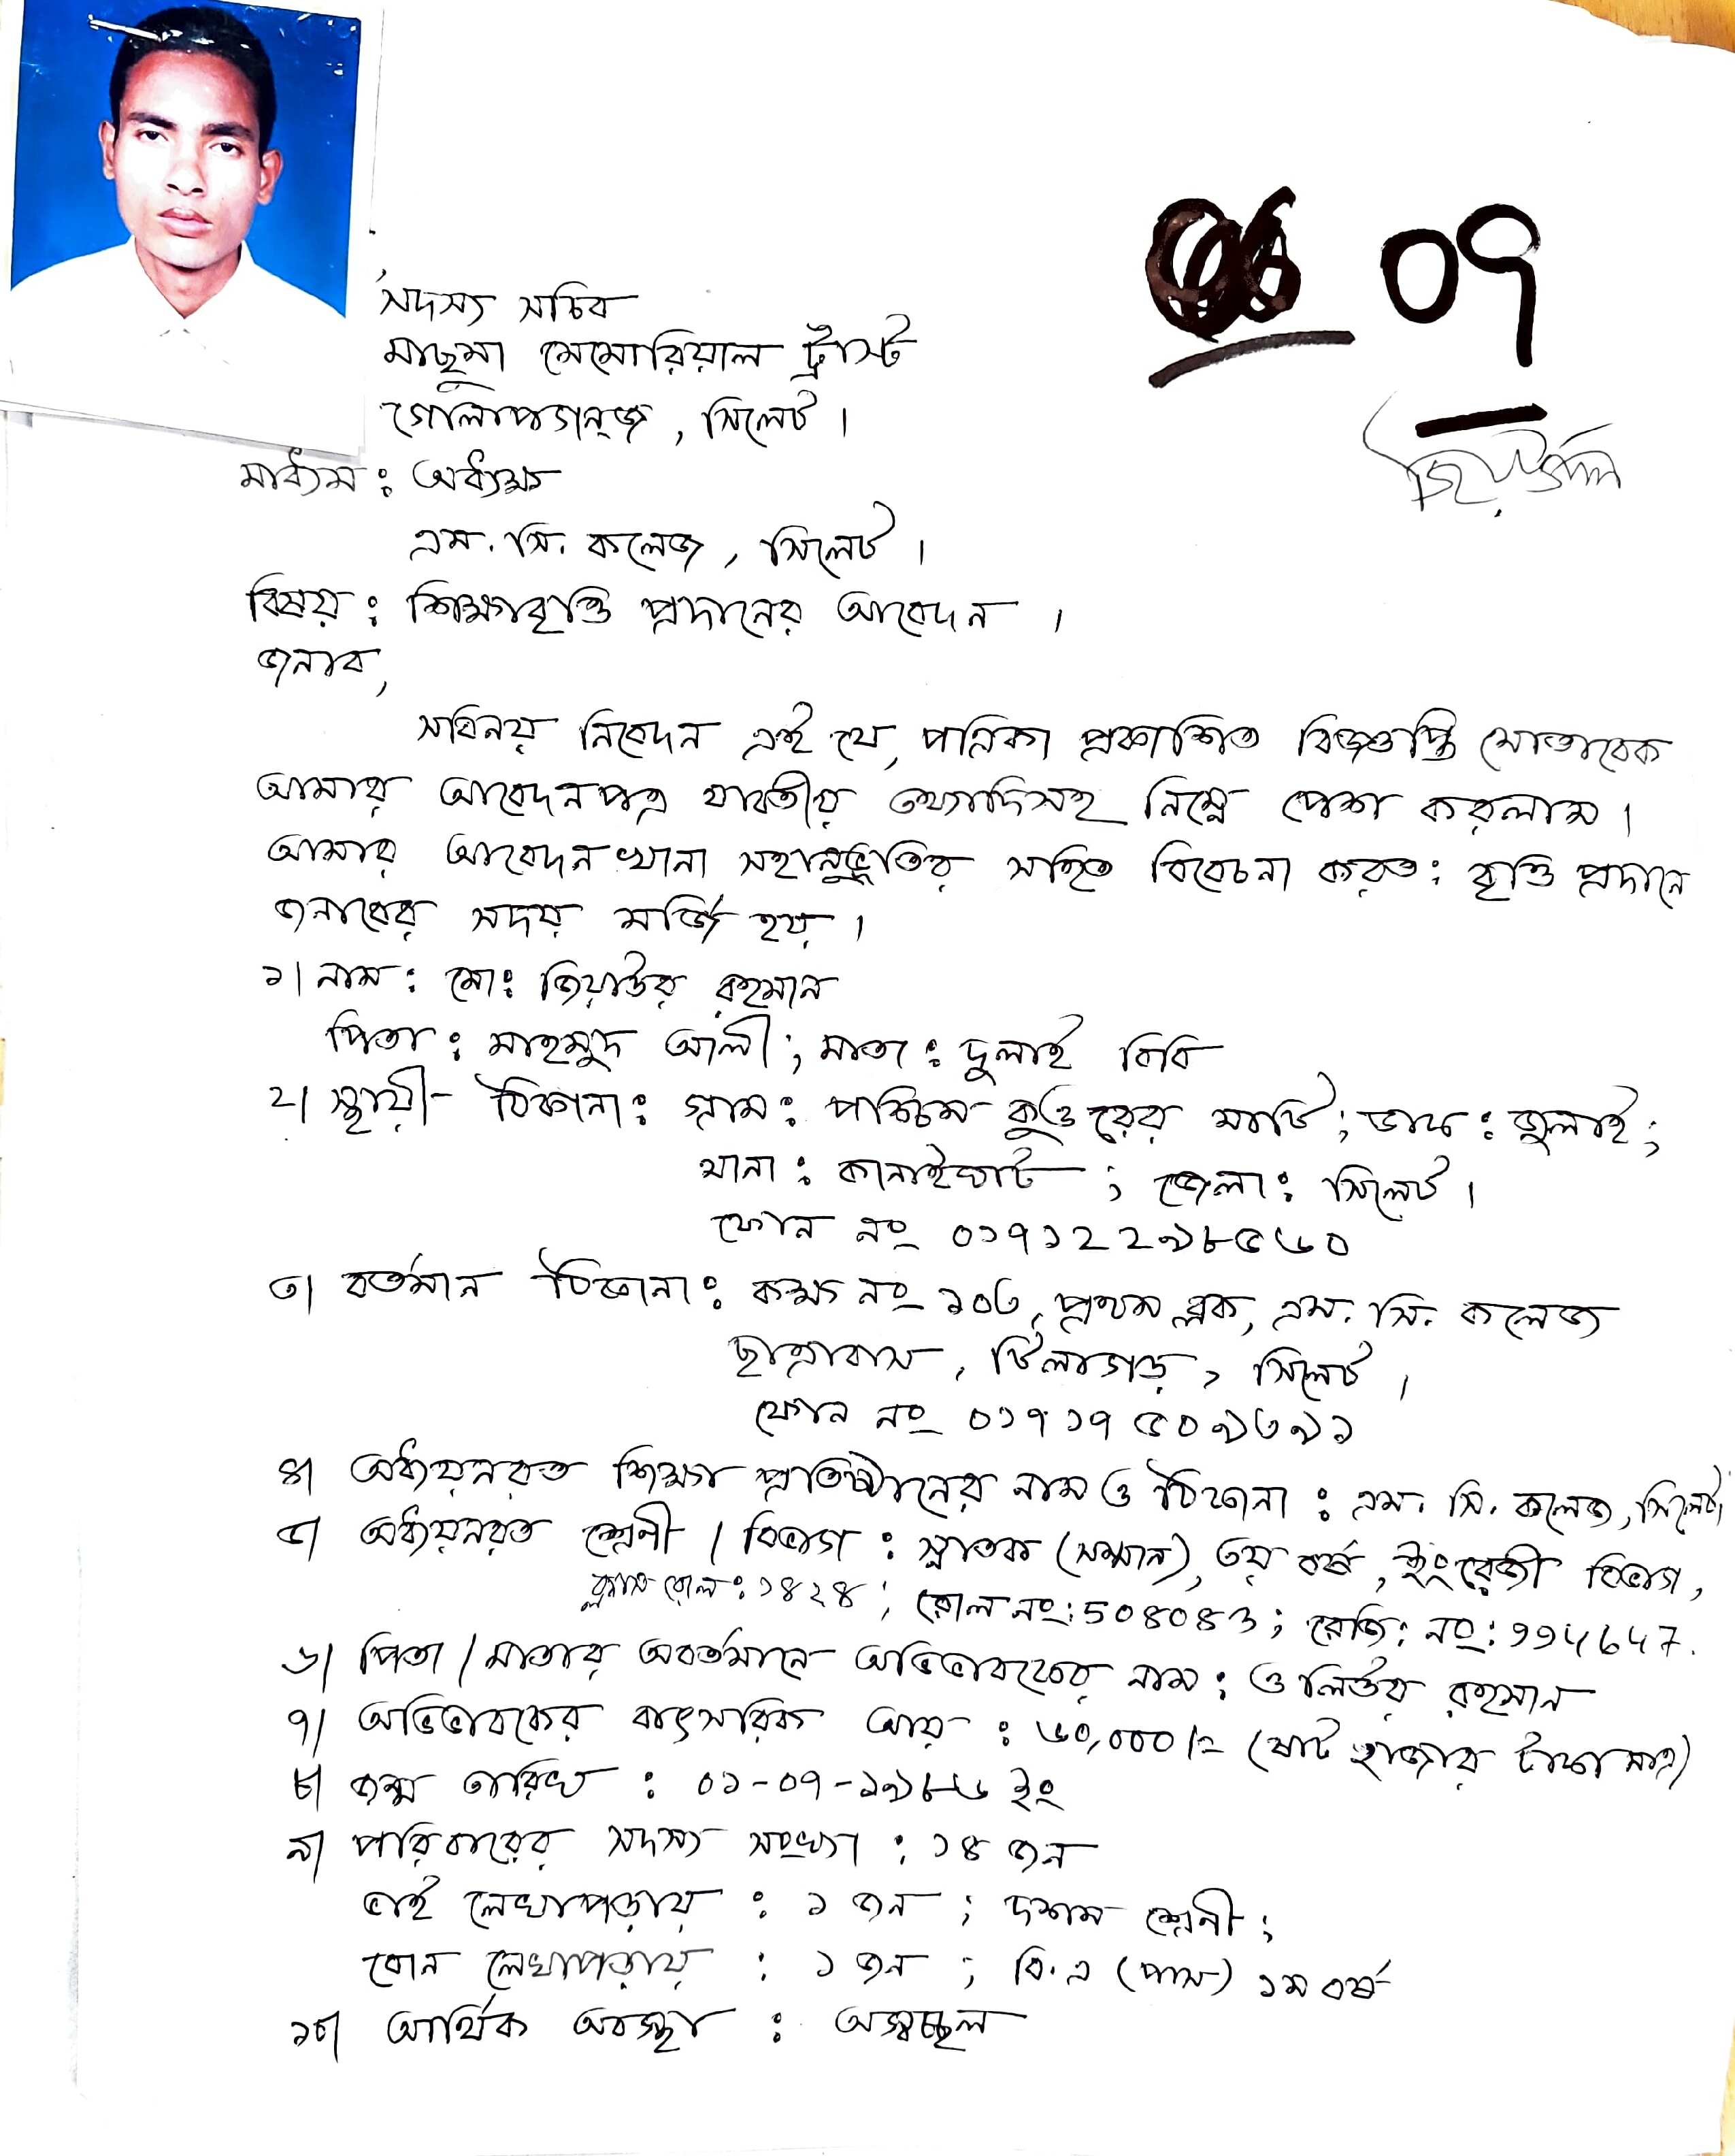 ০৭
সদস্য সচিব
মাছুমা মেমোরিয়াল ট্রাস্ট
গোলাপগন্জ, সিলেট।
মাধ্যম : অধ্যক্ষ
এম. সি. কলেজ, সিলেট।
বিষয় : শিক্ষাবৃত্তি প্রদানের আবেদন।
জনাব,
সবিনয় নিবেদন এই যে, পত্রিকা প্রকাশিত বিজ্ঞপ্তি মোতাবেক
আমার আবেদনপত্র যাবতীয় তথ্যাদিসহ নিম্নে পেশ করলাম।
আমার আবেদন খানা সহানুভূতির সহিত বিবেচনা করত: বৃত্তি প্রদানে
জনাবের সদয় মর্জি হয়।
১। নাম : মো: জিয়াউর রহমান
পিতা : মাহমুদ আলী; মাতা : দুলাই বিবি
২। স্থায়ী ঠিকানা : গ্রাম : পশ্চিম মাটি; ডাক : জুলাই;
থানা : কানাইঘাট ; জেলা : সিলেট।
ফোন নং ০১৭১২২৯৮৫৬০
৩। বর্তমান ঠিকানা : কক্ষ নং ১০৬, প্রথম ব্লক, এম. সি. কলেজ
ছাত্রাবাস, টিলাগড়, সিলেট।
ফোন নং ০১৭১৭৫০৯৬৯১
৪। অধ্যয়নরত শিক্ষা প্রতিষ্ঠানের নাম ও ঠিকানা : এম. সি. কলেজ, সিলেট।
৫। অধ্যয়নরত শ্রেণী / বিভাগ : স্নাতক (সম্মান), ৩য় বর্ষ, ইংরেজী বিভাগ,
ক্লাস রোল : ১৪২৪ ; রোল নং : ; রেজি: নং :
৬। পিতা / মাতার অবর্তমানে অভিভাবকের নাম : ওলিউর রহমান
৭। অভিভাবকের বাৎসরিক আয় : ৬০,০০০/= (ষাট হাজার টাকা মাত্র)
৮। জন্ম তারিখ : ০১-০৭-১৯৮৬ ইং
৯। পরিবারের সদস্য সংখ্যা : ১৪ জন
ভাই লেখাপড়ায় : ১ জন ; দশম শ্রেণী ;
বোন লেখাপড়ায় : ১ জন ; বি.এ (পাস) ১ম বর্ষ
১০। আর্থিক অবস্থা : অস্বচ্ছল